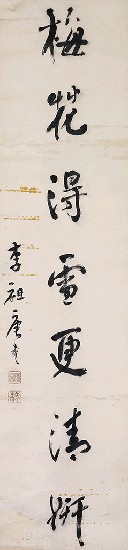 梅花得雪更清妍
李祖